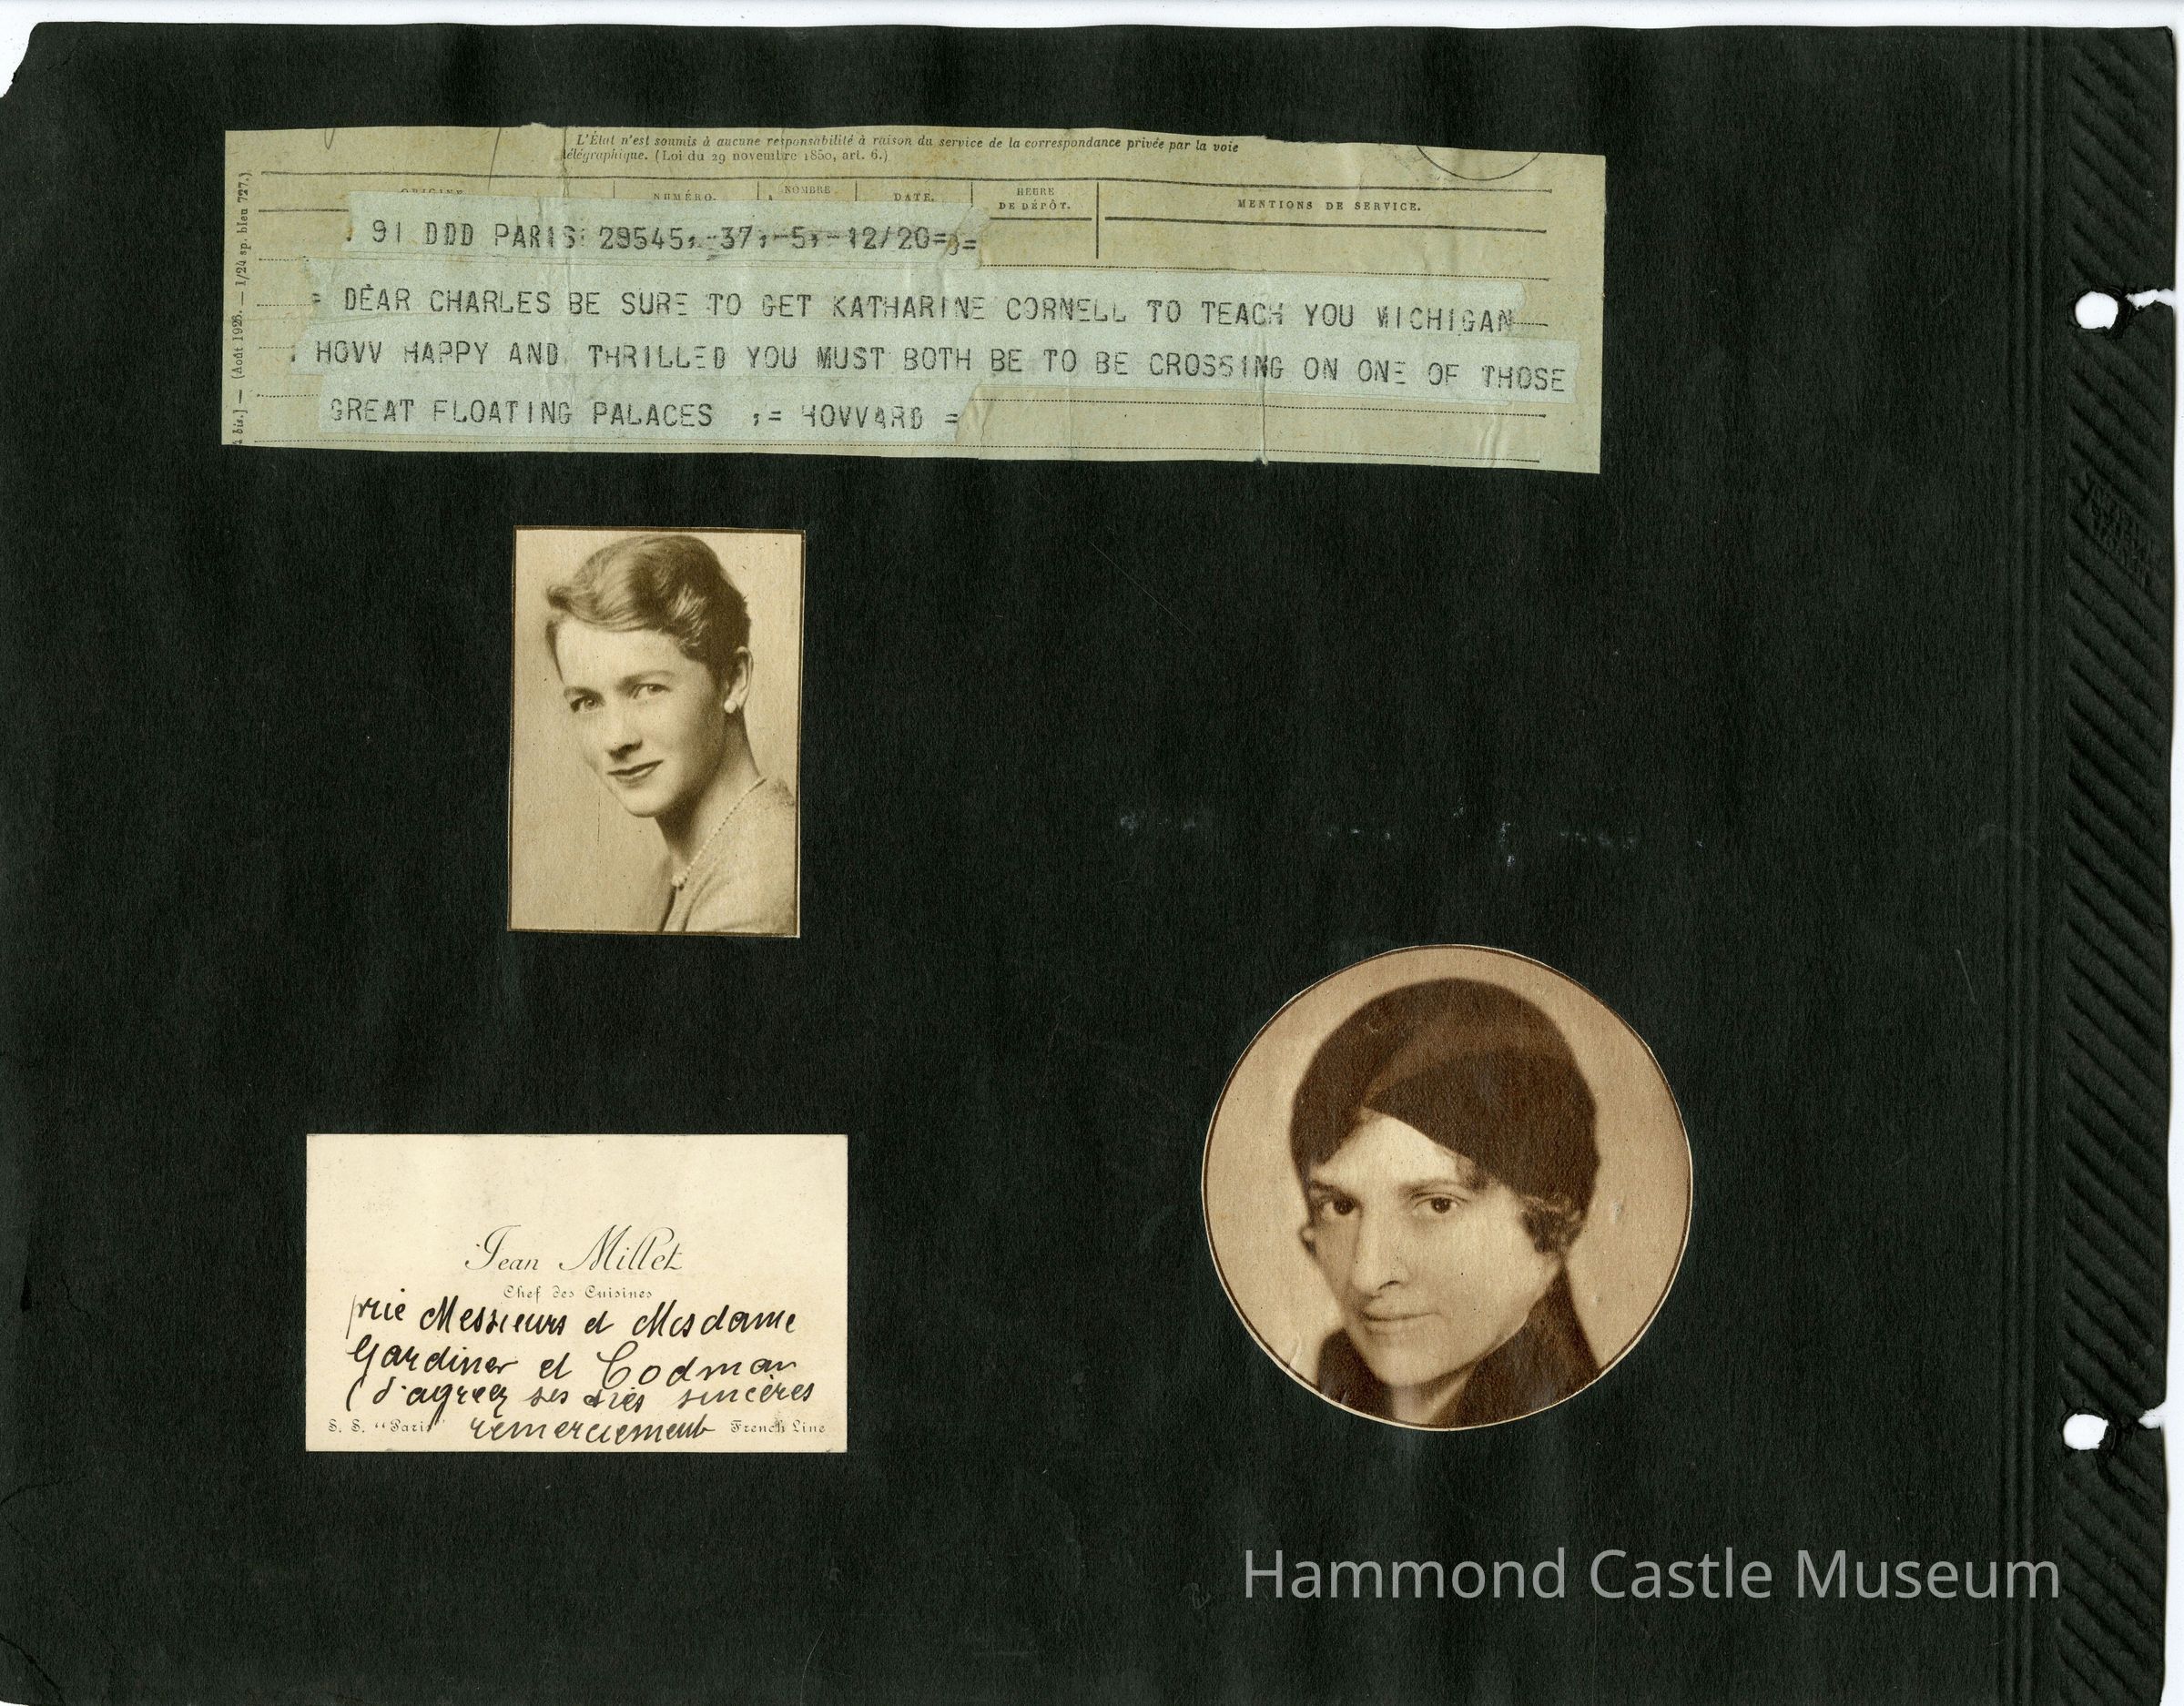 L'État n'est soumis à aucune responsabilité à raison du service de la correspondance privée par la voie
télégraphique. (Loi du 29 novembre 1850, art. 6.)
ORIGINE NUMÉRO. NOMBRE DATE. HEURE DE DÉPÔT. MENTIONS DE SERVICE.
bis.] — (Août 1926. — 1/24 sp. bleu 727.)
91 DDD PARIS 29545,-37,-5,-12/20=
= DEAR CHARLES BE SURE TO GET KATHARINE CORNELL TO TEACH YOU MICHIGAN
HOVV HAPPY AND THRILLED YOU MUST BOTH BE TO BE CROSSING ON ONE OF THOSE
GREAT FLOATING PALACES ,= HOVVARD =
Jean Millet
Chef des Cuisines
prie Messieurs et Mesdame
Gardiner et Codman
d'agreer ses très sincères
remerciement
S. S. "Paris" French Line
Hammond Castle Museum